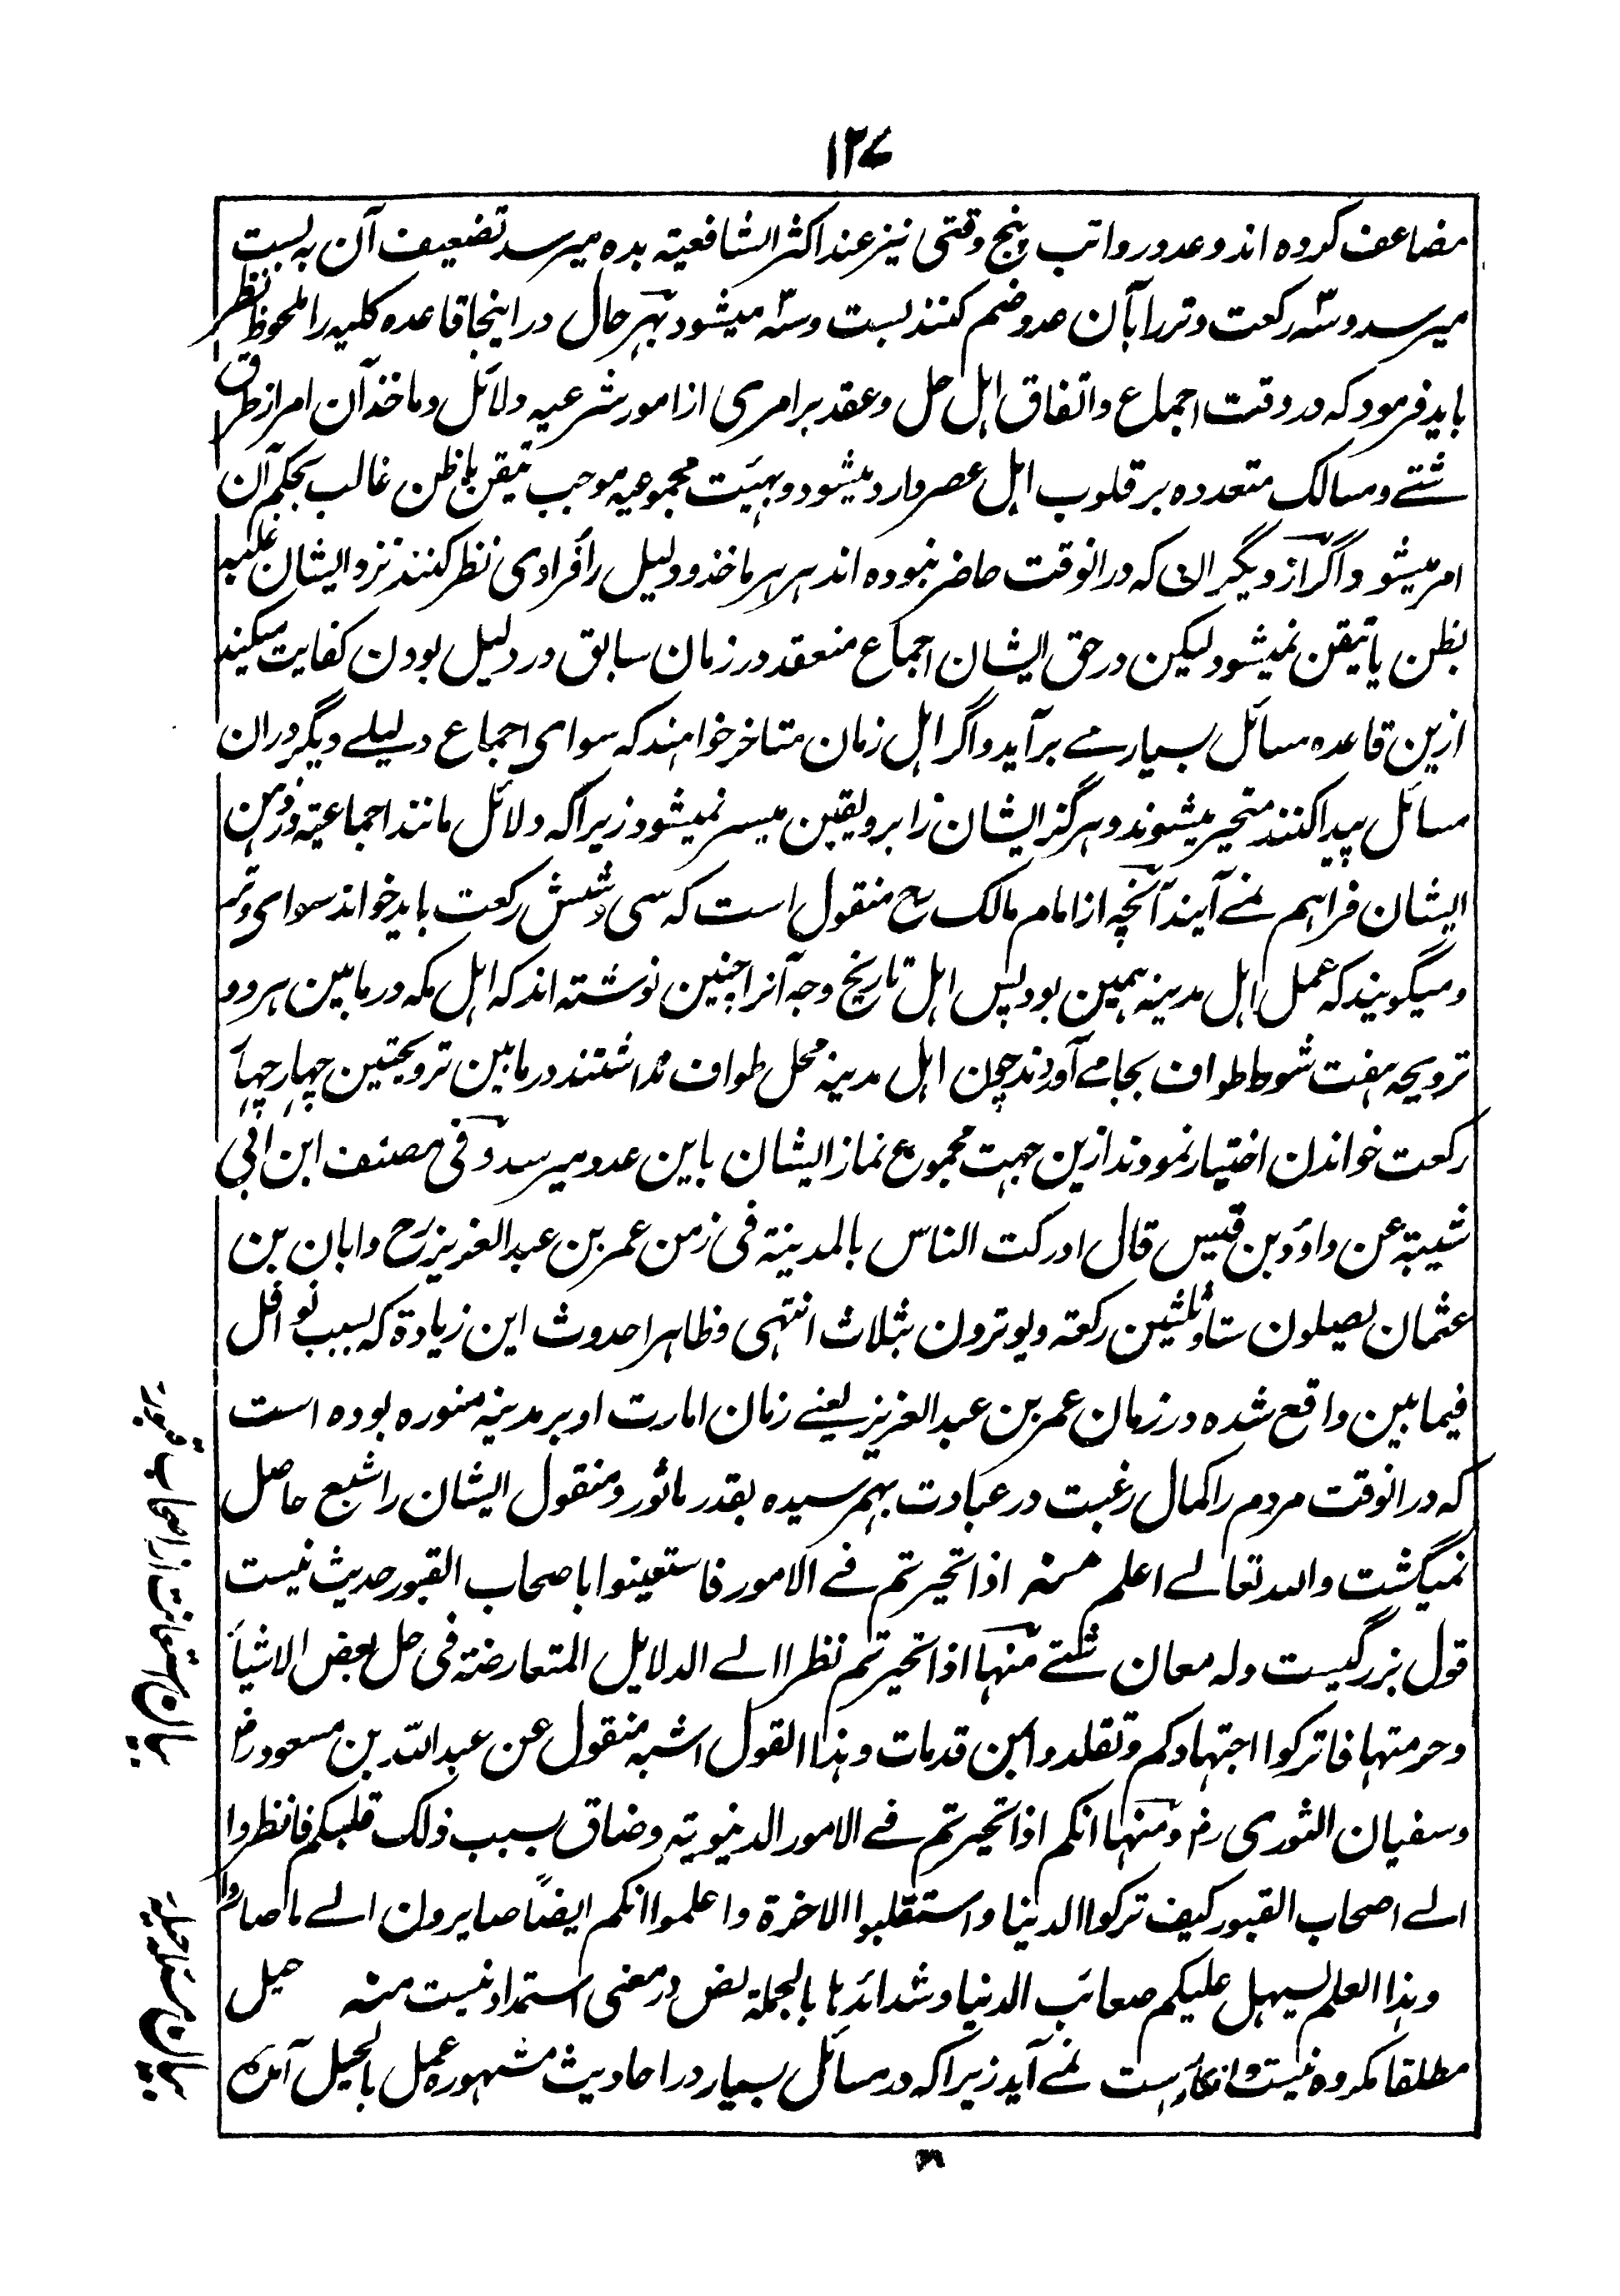 ۱۲۷
مضاعف کرده اند و عدد رواتب پنج وقتی نیز عند اکثر الشافعیته بده میرسد تضعیف آن به بست
میرسد و سه رکعت وتر را بآن عدد ضم کنند بست و سه میشود بهر حال در اینجا قاعده کلیه را ملحوظ نظر
باید فرمود که در وقت اجماع و اتفاق اہل حل و عقد بر امری از امور شرعیه دلائل و ماخذ آن امر از طرق
شتے و مسالک متعدده بر قلوب اہل عصر وارد میشود و بهیئت مجموعیه موجب تیقن یا ظن غالب بحکم آن
امر میشود و اگر از دیگرانی که درانوقت حاضر نبوده اند هر هر ماخذ و دلیل را فرادی نظر کنند نزد ایشان غلبه
بظن یا تیقن نمیشود لیکن در حق ایشان اجماع منعقد در زمان سابق در دلیل بودن کفایت میکند
ازین قاعده مسائل بسیار مے برآید و اگر اہل زمان متاخر خواهند که سوای اجماع دلیلے دیگر دران
مسائل پیدا کنند متحیر میشوند و هرگز ایشان را برد یقین میسر نمیشود زیرا که دلائل مانند اجماعیته در ذهن
ایشان فراهم نمے آیند آنچه از امام مالک رح منقول است که سی و شش رکعت باید خواند سوای وتر
و میگویند که عمل اہل مدینه همین بود پس اہل تاریخ وجه آنرا چنین نوشته اند که اہل مکه در مابین هر دو
ترویحه هفت شوط طواف بجا مے آوردند چون اہل مدینه محل طواف نداشتند در مابین ترویحتین چهار چهار
رکعت خواندن اختیار نمودند ازین جهت مجموع نماز ایشان باین عدد میرسد و فی مصنف ابن ابی
شیبته عن داؤد بن قیس قال ادرکت الناس بالمدینة فی زمن عمر بن عبد العزیز رح و ابان بن
عثمان یصیلون ستا و ثلثین رکعته و یوترون بثلاث انتهی و ظاهرا حدوث این زیادة که بسبب نوافل
فیما بین واقع شده در زمان عمر بن عبد العزیز یعنے زمان امارت او بر مدینه منوره بوده است
که درانوقت مردم را کمال رغبت در عبادت بهم رسیده بقدر ماثور و منقول ایشان را شبع حاصل
نمیگشت والله تعالے اعلم منه اذا تحیرتم فے الامور فاستعینوا باصحاب القبور حدیث نیست
قول بزرگیست وله معان شتے منها اذا تحیرتم نظرا الے الدلایل المتعارضة فی حل بعض الاشیاء
وحرمتها فاترکوا اجتهادکم وتقلدوا من قدمات وهذا القول اشبه منقول عن عبد الله بن مسعود رض
وسفیان الثوری رح ومنها انکم اذا تحیرتم فے الامور الدنیویته وضاق بسبب ذلک قلبکم فانظروا
الے اصحاب القبور کیف ترکوا الدنیا واستقلبوا الاخرة واعلموا انکم ایضًا صایرون الے ما صاروا
وهذا العلم لیسهل علیکم صعائب الدنیا وشدائدها بالجملة نص در معنی استمداد نیست منه حیل
مطلقا مکروه نیست و انکار راست نمے آید زیرا که در مسائل بسیار در احادیث مشهوره عمل بالحیل آمده
بیان استعانت از اصحاب قبور
بیان مسئله حیله